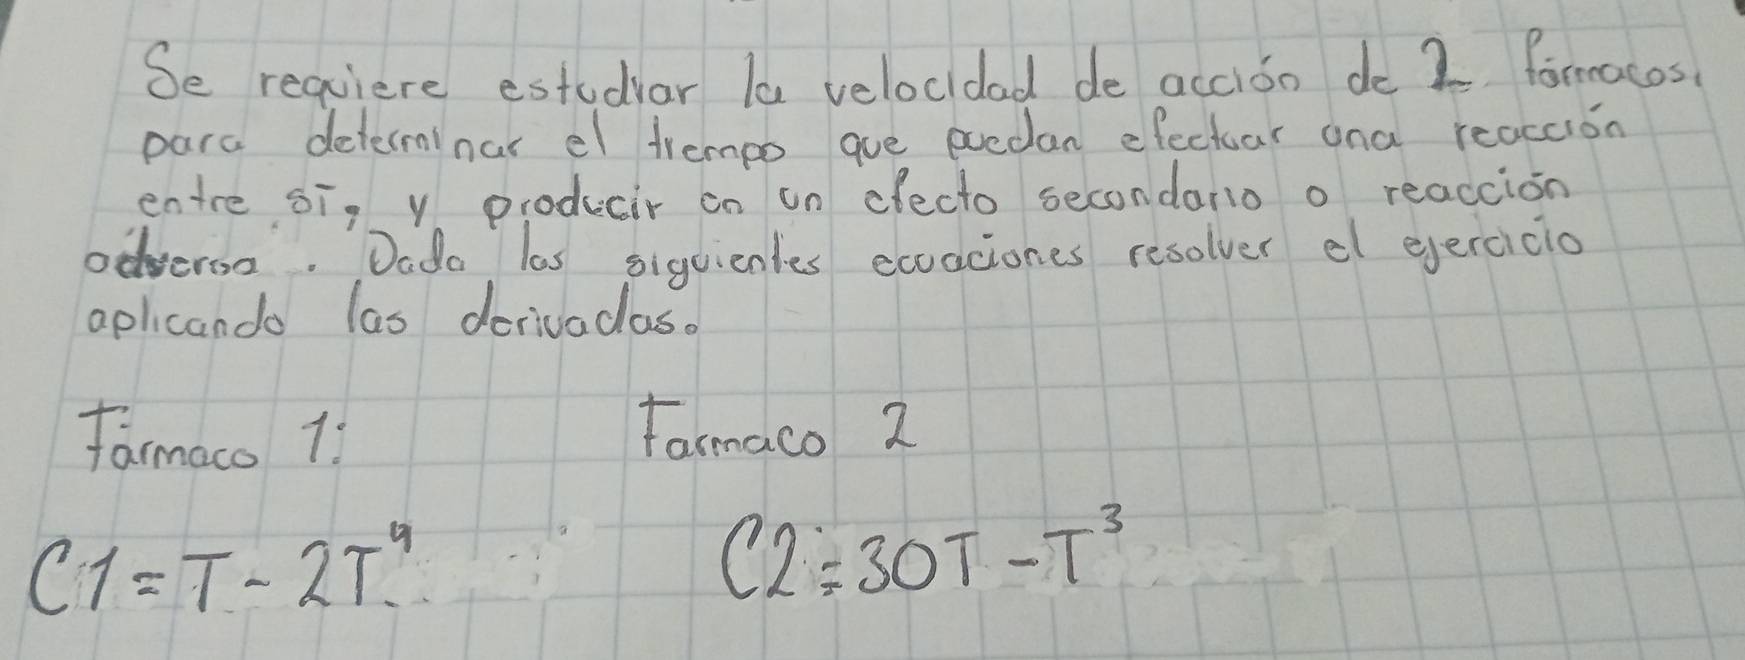 Se requiere estudiar la velocidad de acción de 2 fármacos,
para determinar el tiempo que puedan efectuar una reacción
entre sí, y producir en un efecto secondario o reacción
adversa. Dada las siguientes ecuaciones resolver el ejercicio
aplicando las derivadas.
Fármaco 1: Farmaco 2
C1 = T - 2T⁴ C2 = 30T - T³